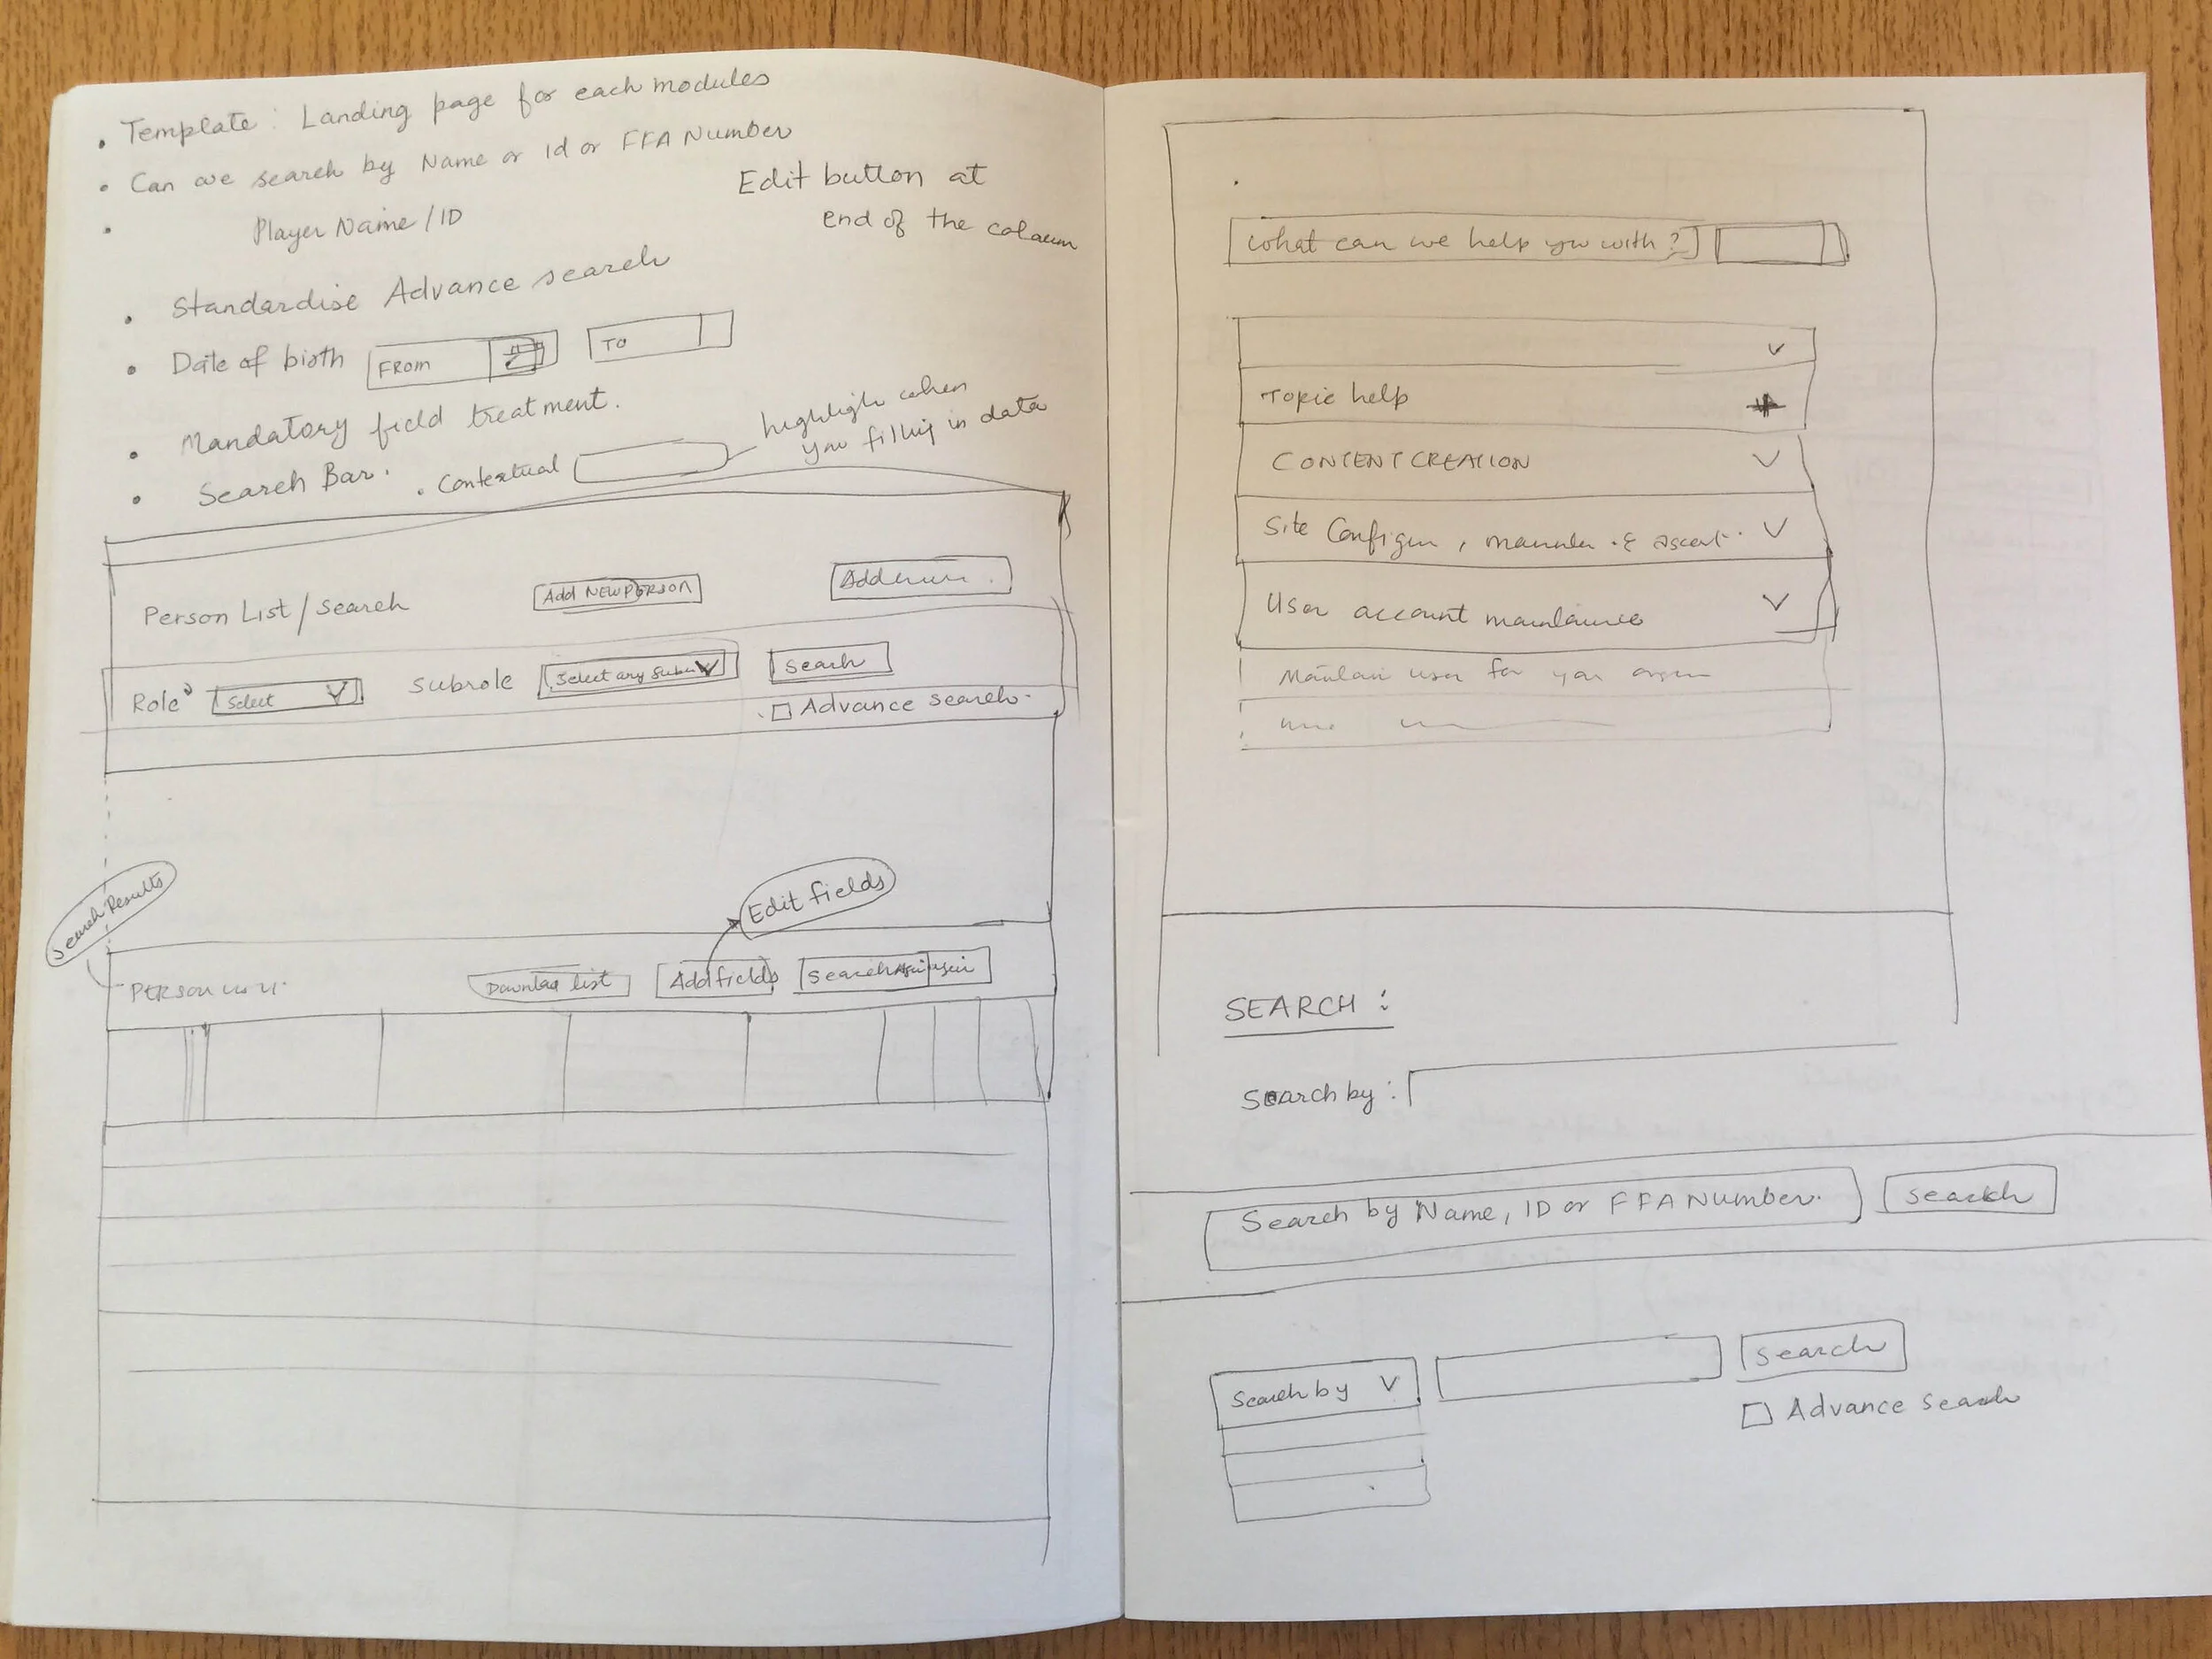 • Template: Landing page for each modules
• Can we search by Name or Id or FFA Number
• Player Name/ID
Edit button at
end of the colaum
• Standardise Advance search
• Date of birth FROM TO
• Mandatory field treatment.
• Search Bar. • Contextual
highligh when
you filling in data
Person List/search Add NEW PERSON
Role Select subrole Select any Search
Advance search.
Search Results
Edit fields
PERSON
list Add fields Search
What can we help you with?
Topic help
CONTENT CREATION
Site
User account
user for
SEARCH:
Search by:
Search by Name, ID or FFA Number. search
Search by search
Advance search